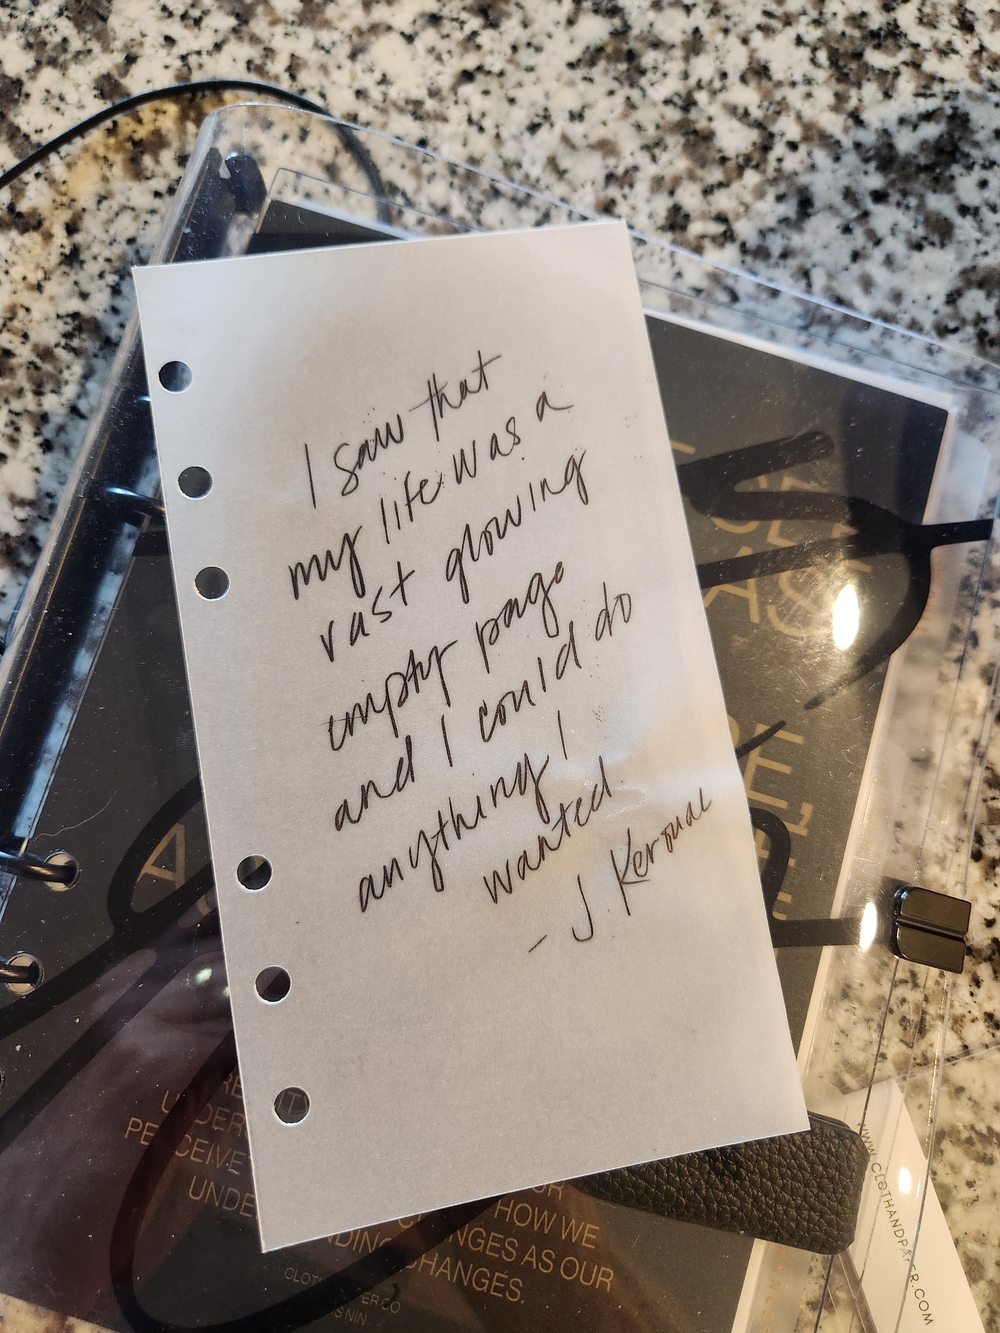 I saw that
my life was a
vast glowing
empty page
and I could do
anything I
wanted.
- J. Kerouac
UNDER
PERCEIVE
HOW WE
CHANGES AS OUR
CHANGES.
WWW.CLOTHANDPAPER.COM